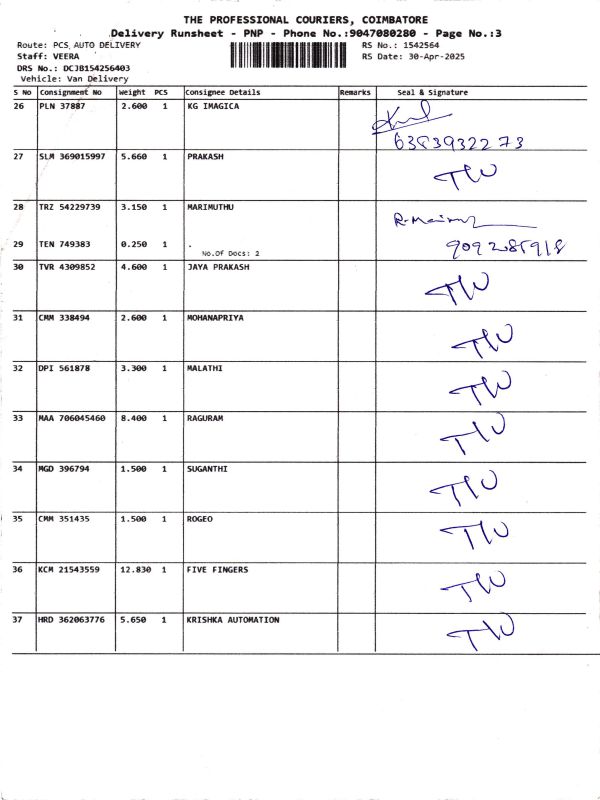 THE PROFESSIONAL COURIERS, COIMBATORE
Delivery Runsheet - PNP - Phone No.:9047080280 - Page No.:3
Route: PCS AUTO DELIVERY RS No.: 1542564
Staff: VEERA RS Date: 30-Apr-2025
DRS No.: DCJB154256403
Vehicle: Van Delivery
S No Consignment No Weight PCS Consignee Details Remarks Seal & Signature
26 PLN 37887 2.600 1 KG IMAGICA
6383932273
27 SLM 369015997 5.660 1 PRAKASH
28 TRZ 54229739 3.150 1 MARIMUTHU
29 TEN 749383 0.250 1 .
No.Of Docs: 2
30 TVR 4309852 4.600 1 JAYA PRAKASH
31 CMM 338494 2.600 1 MOHANAPRIYA
32 DPI 561878 3.300 1 MALATHI
33 MAA 706045460 8.400 1 RAGURAM
34 MGD 396794 1.500 1 SUGANTHI
35 CMM 351435 1.500 1 ROGEO
36 KCM 21543559 12.830 1 FIVE FINGERS
37 HRD 362063776 5.650 1 KRISHKA AUTOMATION